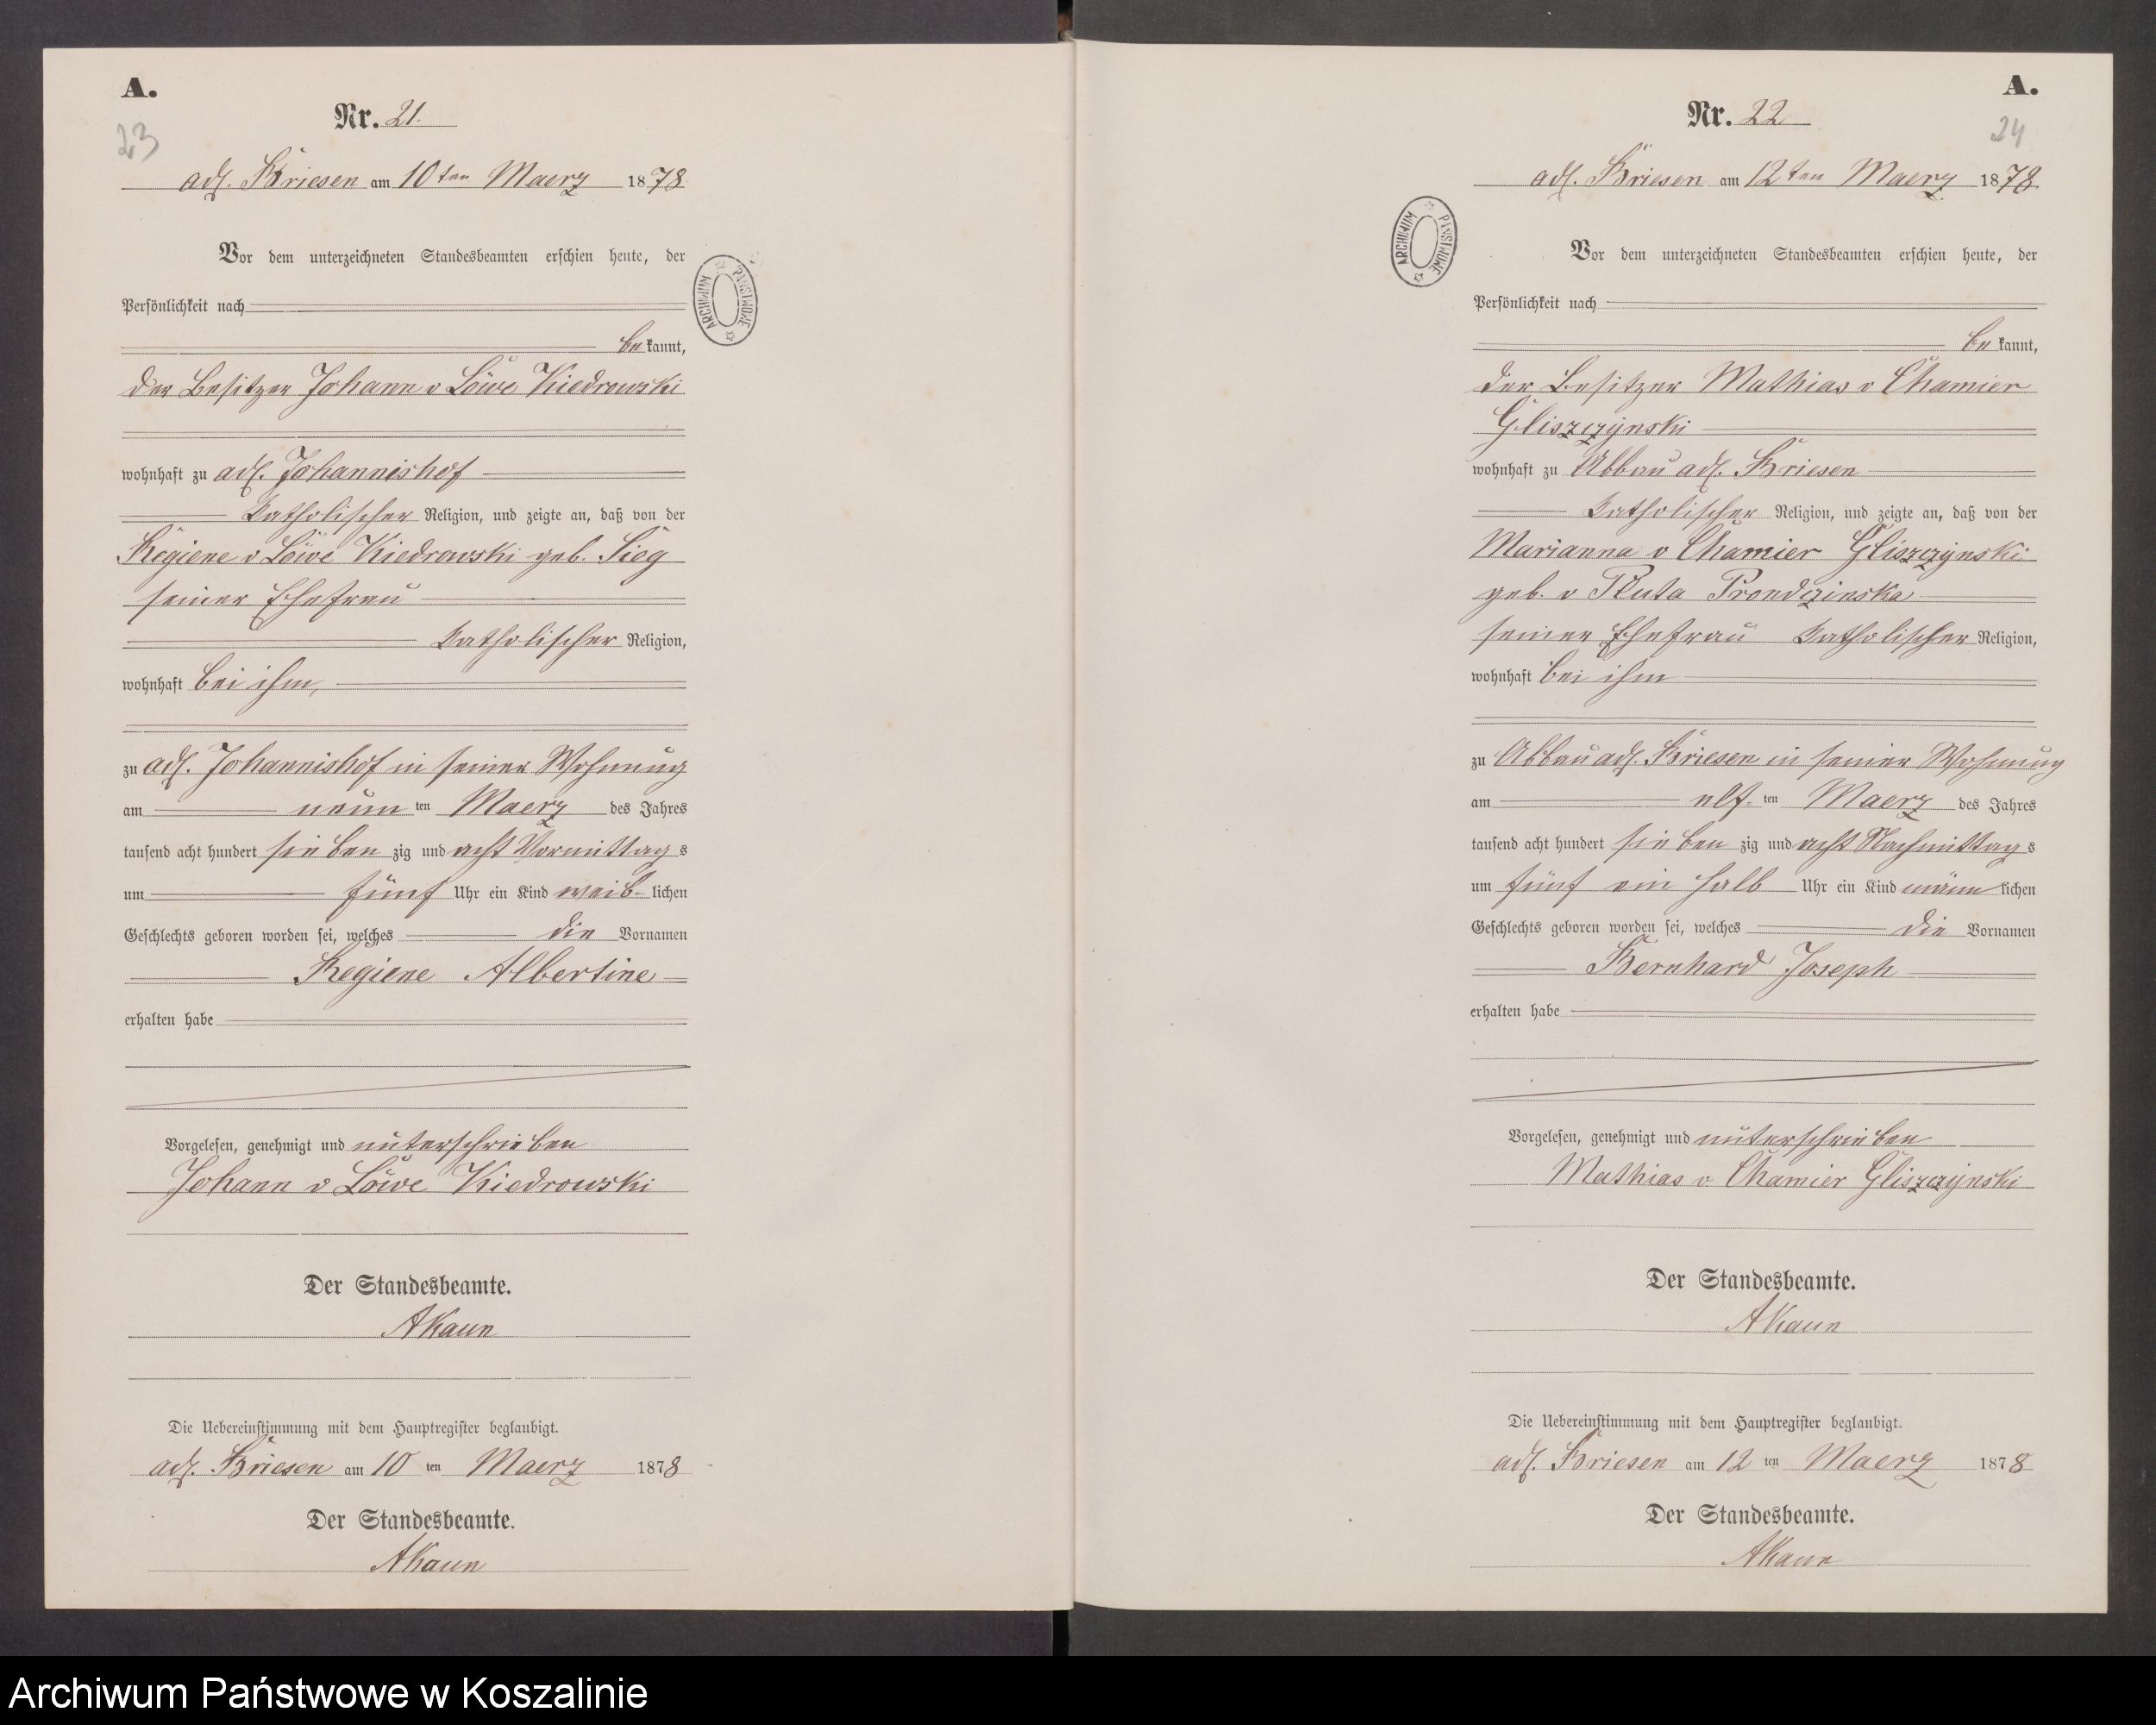 A.
23
Nr. 21.
adl. Briesen am 10ten Maerz 1878
Vor dem unterzeichneten Standesbeamten erschien heute, der
Persönlichkeit nach
bekannt,
der Besitzer Johann v Löwe Kiedrowski
wohnhaft zu adl. Johannishof
Katholischer Religion, und zeigte an, daß von der
Regiene v Löwe Kiedrowski geb. Sieg
seiner Ehefrau
Katholischer Religion,
wohnhaft bei ihm,
zu adl. Johannishof in seiner Wohnung
am neunten Maerz des Jahres
tausend acht hundert siebenzig und acht Vormittags
um fünf Uhr ein Kind weib-lichen
Geschlechts geboren worden sei, welches die Vornamen
Regiene Albertine
erhalten habe
Vorgelesen, genehmigt und unterschrieben
Johann v Löwe Kiedrowski
Der Standesbeamte.
AKaun
Die Uebereinstimmung mit dem Hauptregister beglaubigt.
adl. Briesen am 10ten Maerz 1878
Der Standesbeamte.
AKaun
ARCHIWUM PAŃSTWOWE
A.
24
Nr. 22
adl. Briesen am 12ten Maerz 1878
Vor dem unterzeichneten Standesbeamten erschien heute, der
Persönlichkeit nach
bekannt,
der Besitzer Mathias v Chamier
Gliszczynski
wohnhaft zu Abbau adl. Briesen
Katholischer Religion, und zeigte an, daß von der
Marianna v Chamier Gliszczynski
geb. v Pluta Prondzinska
seiner Ehefrau Katholischer Religion,
wohnhaft bei ihm
zu Abbau adl. Briesen in seiner Wohnung
am elf-ten Maerz des Jahres
tausend acht hundert siebenzig und acht Nachmittags
um fünf ein halb Uhr ein Kind männlichen
Geschlechts geboren worden sei, welches die Vornamen
Bernhard Joseph
erhalten habe
Vorgelesen, genehmigt und unterschrieben
Mathias v Chamier Gliszczynski
Der Standesbeamte.
AKaun
Die Uebereinstimmung mit dem Hauptregister beglaubigt.
adl. Briesen am 12ten Maerz 1878
Der Standesbeamte.
AKaun
ARCHIWUM PAŃSTWOWE
Archiwum Państwowe w Koszalinie